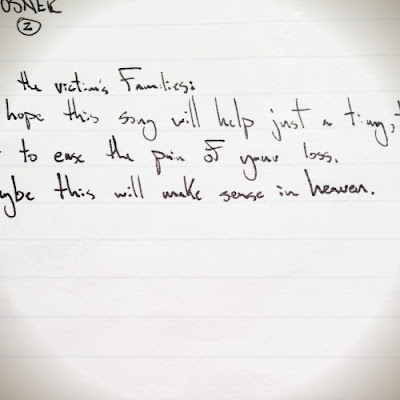 OSNER
2
the victim's Families:
hope this song will help just a tiny,
to ease the pain of your loss.
ybe this will make sense in heaven.